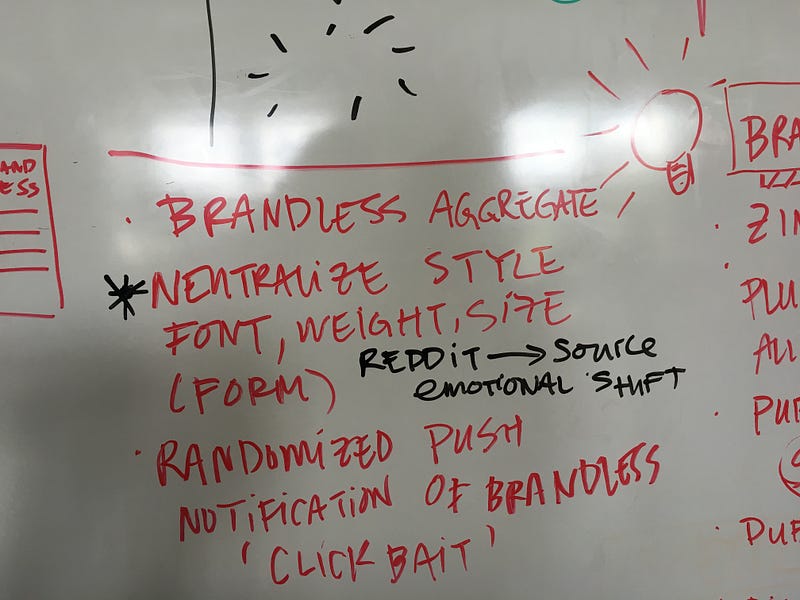 AND
ESS
• BRANDLESS AGGREGATE
* NEUTRALIZE STYLE
FONT, WEIGHT, SIZE
(FORM)
REDDIT → SOURCE
EMOTIONAL SHIFT
• RANDOMIZED PUSH
NOTIFICATION OF BRANDLESS
'CLICK BAIT'
BRA
• ZIN
•
PLU
ALL
• PUB
• PUB